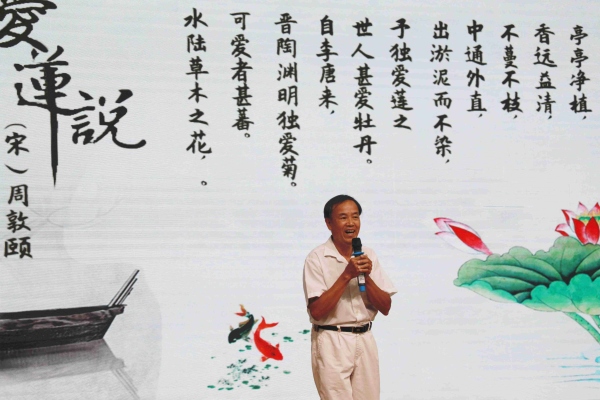 愛蓮説
(宋)周敦颐
水陆草木之花，。
可爱者甚蕃。
晋陶渊明独爱菊。
自李唐来，
世人甚爱牡丹。
予独爱莲之
出淤泥而不染，
中通外直，
不蔓不枝，
香远益清，
亭亭净植，